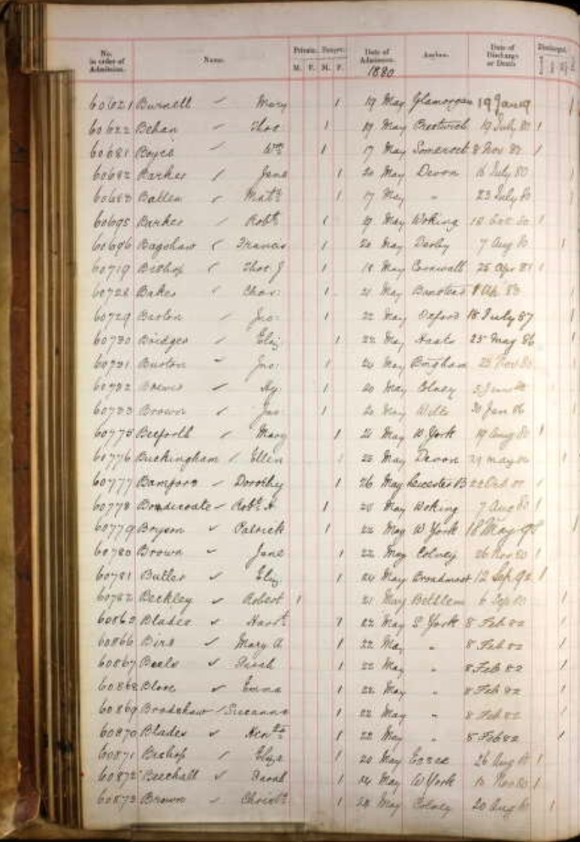 No. in order of Admission. Name. Private. Pauper. Date of Admission. Asylum. Date of Discharge or Death Discharged.
M. F. M. F. 1880
60621 Burnell Mary 1 19 May Glamorgan 19 Jan
60622 Behan Thos. 1 19 May Prestwich 19 July 80 1
60681 Boyce Wm 1 17 May Somerset 8 Nov 1
60682 Parker Jane 1 20 May Devon 16 July 80
60683 Matt. 1 17 May " 23 July 80
60695 Barker Robt. 1 19 May Woking 1
60696 Bagshaw Francis 1 20 May Derby 7 Aug 80
60719 Bishop Thos J 1 18 May Cornwall 25 Apr 81 1
60728 Baker Chas. 1 21 May Banstead
60729 Jno. 1 22 May Oxford 18 July 87
60730 Bridges Eliz. 1 22 May Hants 25 May 86
60731 Burton Jno. 1 24 May Bingham
60732 Hy. 1 20 May Colney
60733 Brown Jas. 1 20 May Wilts 30 Jan 86
60775 Beeforth Mary 1 21 May W York 19 Aug 80 1
60776 Buckingham Ellen 1 25 May Devon 29 May
60777 Bamford Dorothy 1 26 May Leicester B 22 Oct
60778 Robt. A 1 25 May Woking 7 Aug 80 1
60779 Boyson Patrick 1 22 May W York 18 May
60780 Brown Jane 1 22 May Colney 26 Nov 80 1
60781 Butler Eliz. 1 24 May Broadmoor 12 Sep 92 1
60782 Beckley Robert 1 21 May Bethlem 6 Sep 80
60865 Blades 1 22 May S York 8 Feb 82
60866 Bird Mary A 1 22 May " 8 Feb 82
60867 Beels Sarah 1 22 May " 8 Feb 82
60868 Emma 1 22 May " 8 Feb 82
60869 Bradshaw Susanna 1 22 May " 8 Feb 82
60870 Blades 1 22 May " 8 Feb 82
60871 Bishop Eliza 1 20 May Essex 26 Aug 1
60872 Beechall Sarah 1 24 May W York Nov 80 1
60873 Brown Christr. 1 24 May Colney 20 Aug 80